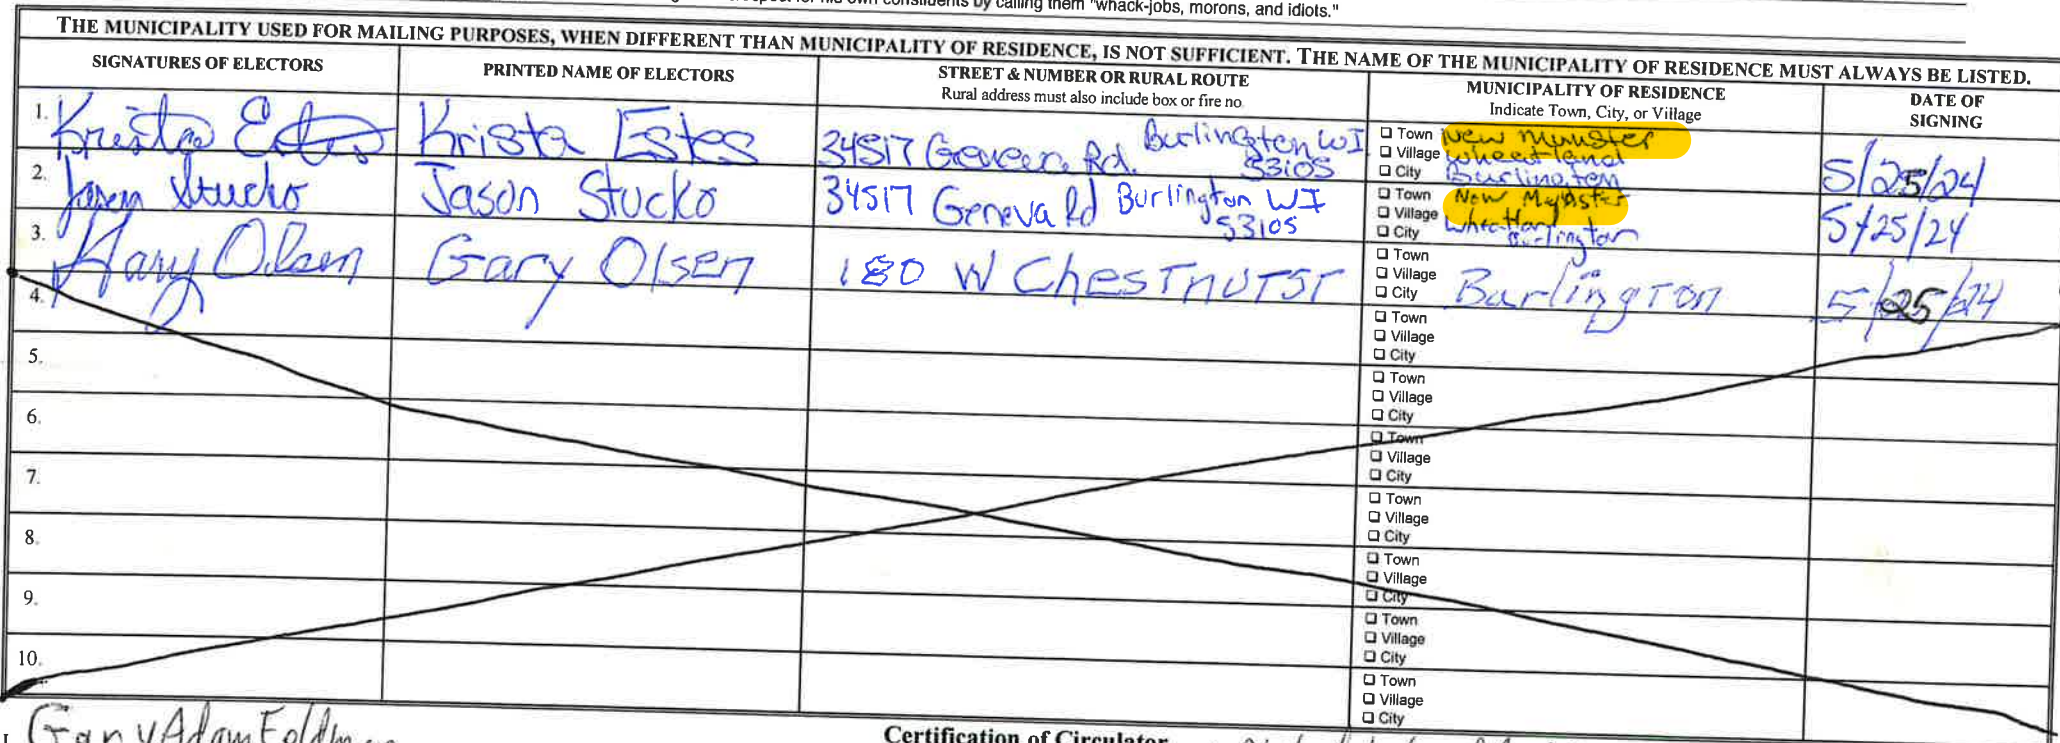 his own constituents by calling them "whack-jobs, morons, and idiots."
THE MUNICIPALITY USED FOR MAILING PURPOSES, WHEN DIFFERENT THAN MUNICIPALITY OF RESIDENCE, IS NOT SUFFICIENT. THE NAME OF THE MUNICIPALITY OF RESIDENCE MUST ALWAYS BE LISTED.
SIGNATURES OF ELECTORS
PRINTED NAME OF ELECTORS
STREET & NUMBER OR RURAL ROUTE
Rural address must also include box or fire no.
MUNICIPALITY OF RESIDENCE
Indicate Town, City, or Village
DATE OF
SIGNING
1. Krista Estes Krista Estes 34517 Geneva Rd. Burlington WI 53105
Town New Munster
Village Wheatland
City Burlington
5/25/24
2. Jason Stucko Jason Stucko 34517 Geneva Rd Burlington WI 53105
Town New Munster
Village Wheatland
City Burlington
5/25/24
3. Gary Olsen Gary Olsen 180 W Chestnut ST
Town
Village
City Burlington
5/25/24
4.
Town
Village
City
5.
Town
Village
City
6.
Town
Village
City
7.
Town
Village
City
8.
Town
Village
City
9.
Town
Village
City
10.
Town
Village
City
I, Gary Adam
Certification of Circulator